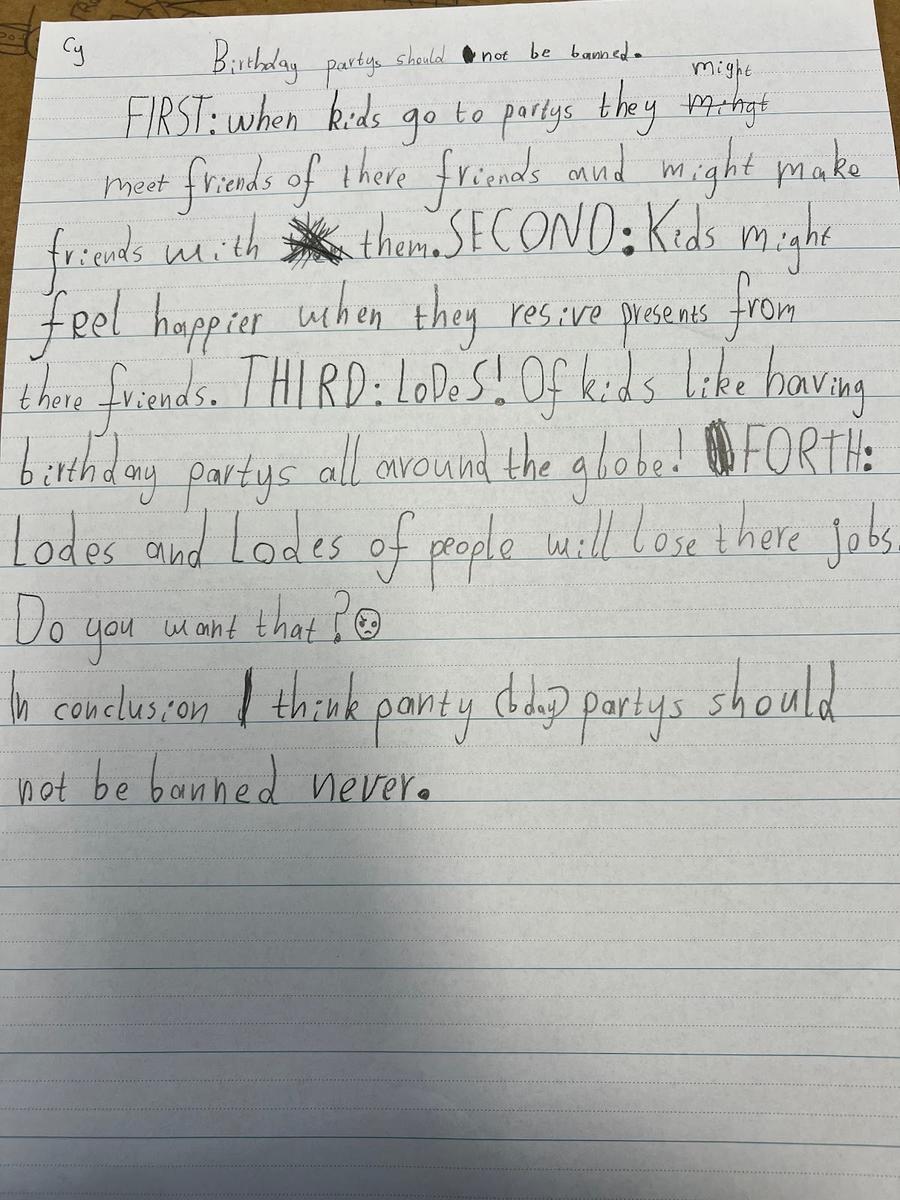 Cy
Birthday partys should not be banned.
might
FIRST: when kids go to partys they mihgt
meet friends of there friends and might make
friends with them. SECOND: Kids might
feel happier when they resive presents from
there friends. THIRD: LoDeS! Of kids like having
birthday partys all around the globe! FORTH:
Lodes and Lodes of people will lose there jobs.
Do you want that?
In conclusion I think panty (bday) partys should
not be banned never.